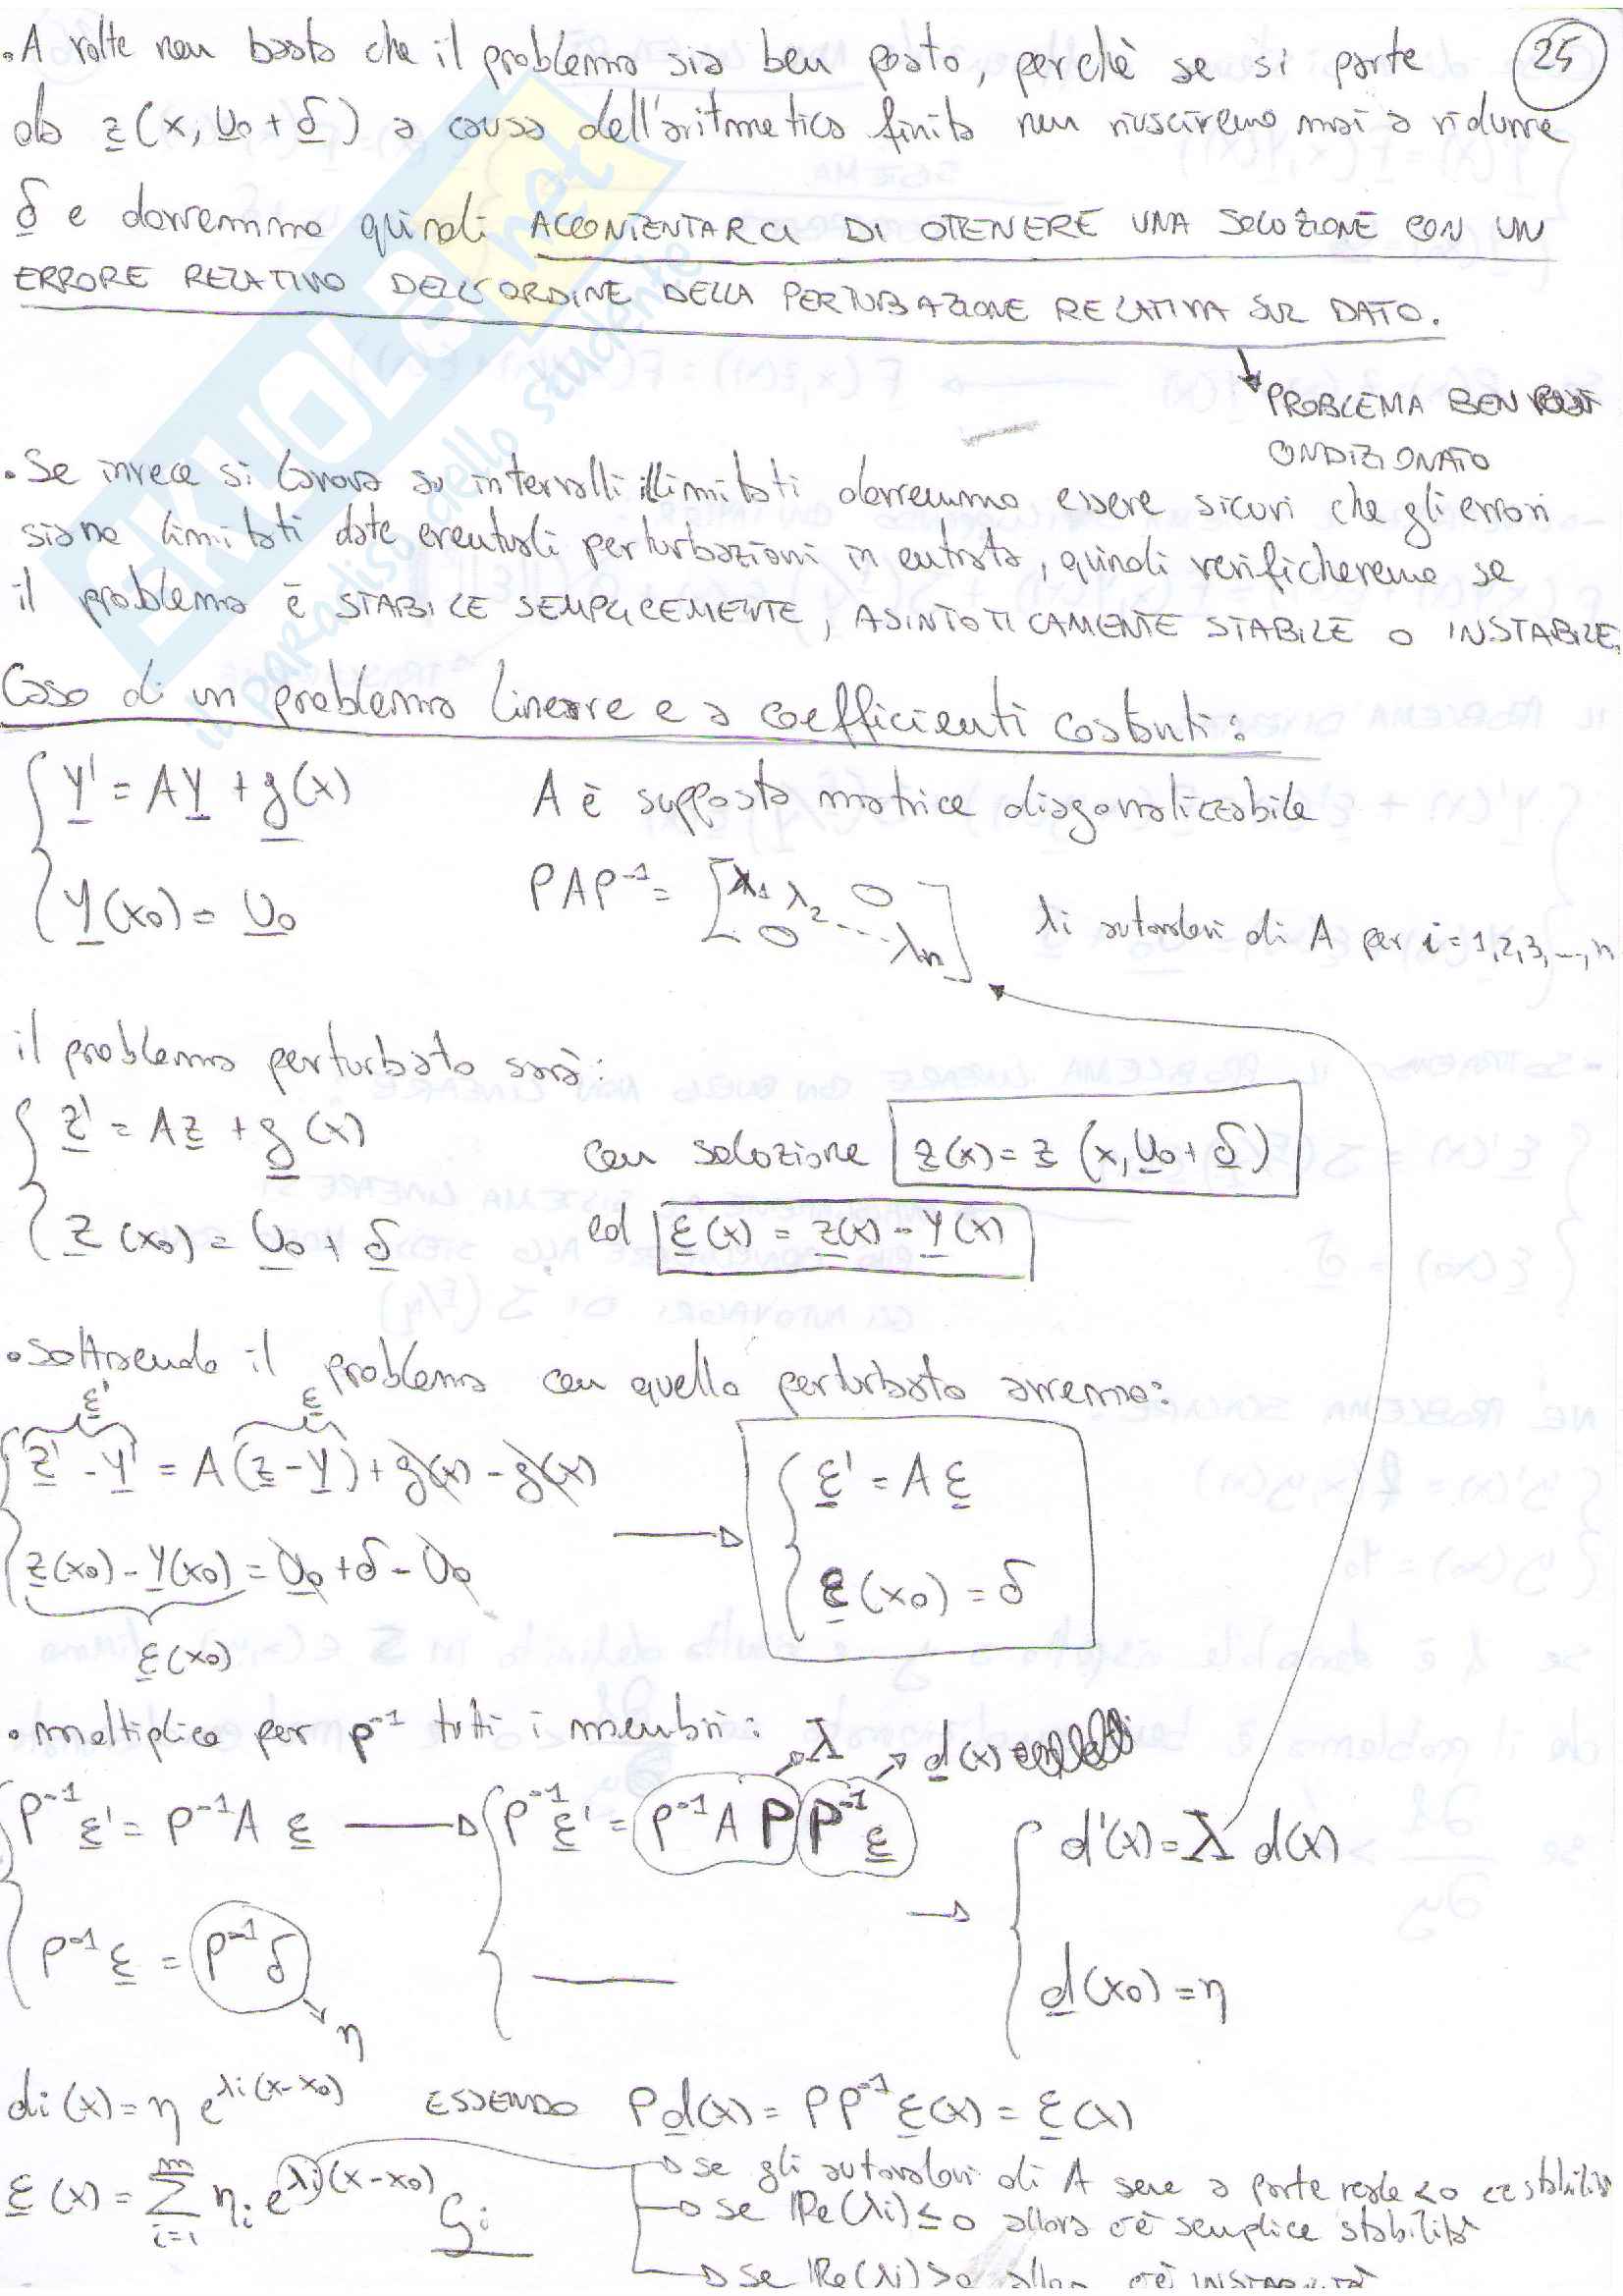 25
• A volte non basta che il problema sia ben posto, perchè se si parte
da z(x, U₀ + δ) a causa dell'aritmetica finita non riusciremo mai a ridurre
δ e dovremmo quindi ACCONTENTARCI DI OTTENERE UNA SOLUZIONE CON UN
ERRORE RELATIVO DELL'ORDINE DELLA PERTURBAZIONE RELATIVA SUL DATO.
PROBLEMA BEN
CONDIZIONATO
• Se invece si lavora su intervalli illimitati dovremmo essere sicuri che gli errori
siano limitati date eventuali perturbazioni in entrata, quindi verificheremo se
il problema è STABILE SEMPLICEMENTE, ASINTOTICAMENTE STABILE O INSTABILE.
Caso di un problema lineare e a coefficienti costanti:
Y' = AY + g(x) A è supposta matrice diagonalizzabile
Y(x₀) = U₀ PAP⁻¹ = [λ₁ λ₂ 0 0 ... λn] λi autovalori di A per i = 1,2,3,...,n
il problema perturbato sarà:
z' = Az + g(x) con soluzione z(x) = z(x, U₀ + δ)
z(x₀) = U₀ + δ ed ε(x) = z(x) - Y(x)
• sottraendo il problema con quello perturbato avremo:
ε' ε
z' - Y' = A(z - Y) + g(x) - g(x) ε' = Aε
z(x₀) - Y(x₀) = U₀ + δ - U₀ ε(x₀) = δ
ε(x₀)
• moltiplico per P⁻¹ tutti i membri: λ d(x)
P⁻¹ε' = P⁻¹A ε P⁻¹ε' = P⁻¹A P P⁻¹ε d'(x) = λ d(x)
P⁻¹ε = P⁻¹δ d(x₀) = η
η
di(x) = η e^λi(x-x₀) ESSENDO Pd(x) = PP⁻¹ε(x) = ε(x)
ε(x) = Σ i=1 m ηi e^λi(x-x₀) Si
se gli autovalori di A sono a parte reale <0 c'è stabilità
se Re(λi) ≤ 0 allora c'è semplice stabilità
se Re(λi) > 0 allora c'è INSTABILITÀ
SKUOLA.net
il paradiso dello studente